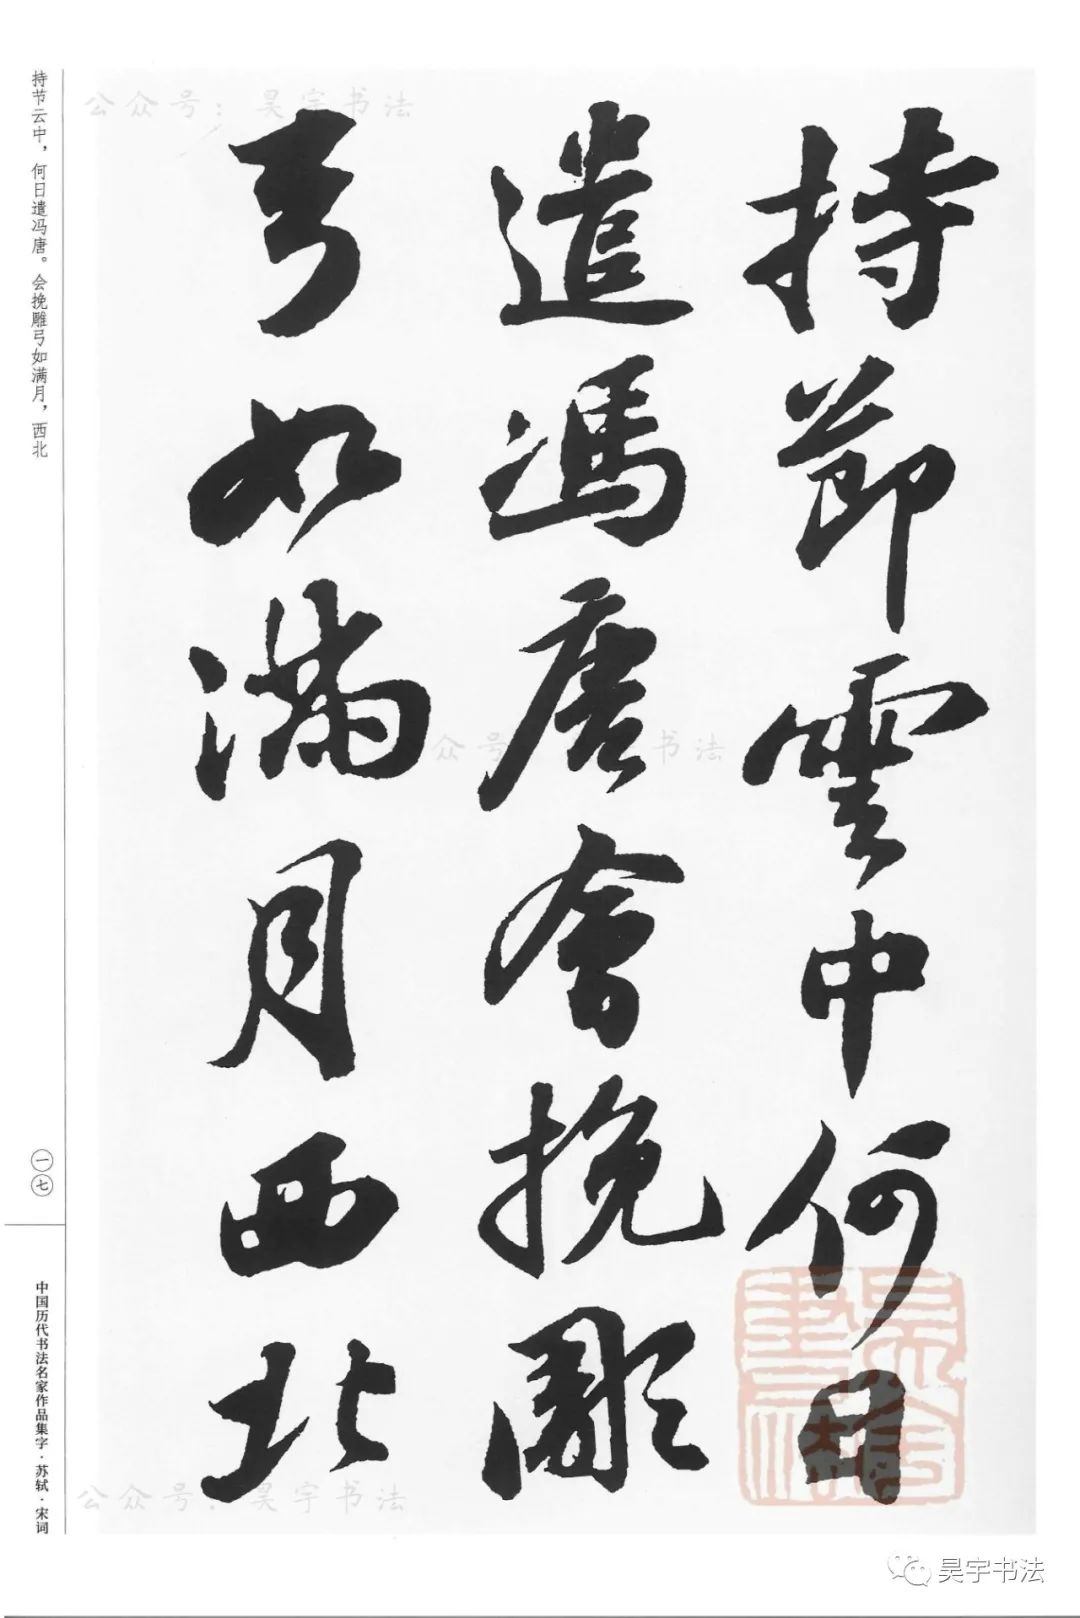 公众号：昊宇书法
持節雲中何日
遣馮唐會挽彫
弓如满月西北
公众号 书法
公众号：昊宇书法
持节云中，何日遣冯唐。会挽雕弓如满月，西北
一七
中国历代书法名家作品集字·苏轼·宋词
昊宇书法